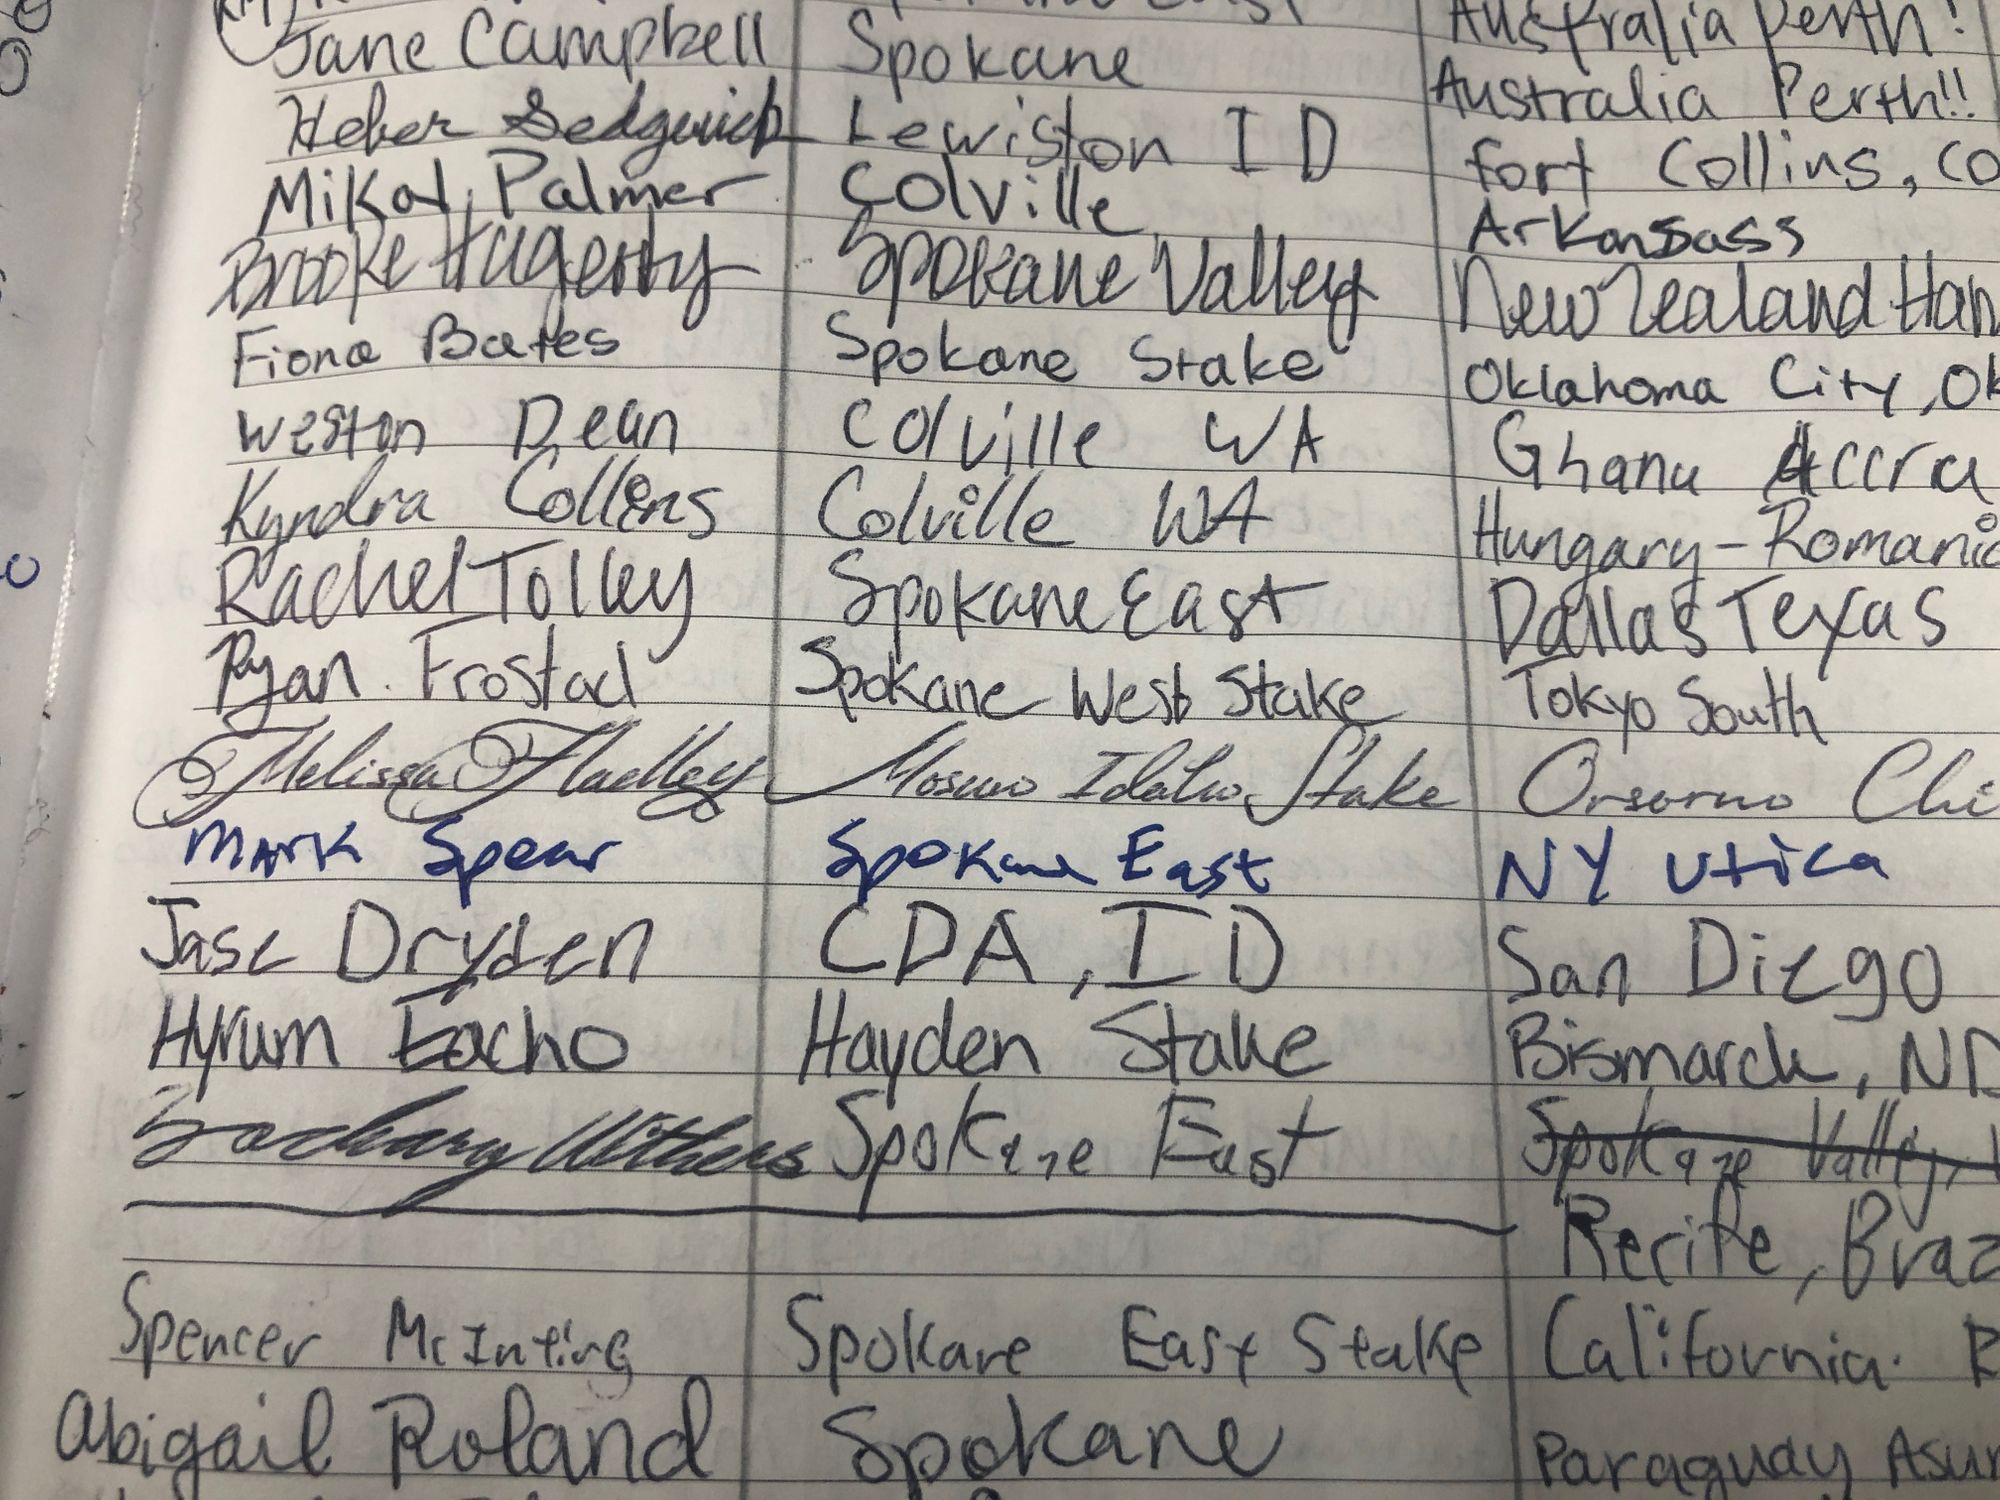 Jane Campbell Spokane Australia Perth!
Heber Sedgwick Lewiston ID Australia Perth!!
Mikal Palmer Colville Fort Collins, CO
Brooke Hagerty Spokane Valley Arkansass
Fiona Bates Spokane Stake New Zealand Ham
Weston Dean Colville WA Oklahoma City, OK
Kyndra Collins Colville WA Ghana Accra
Rachel Tolley Spokane East Hungary-Romania
Ryan Frostad Spokane West Stake Dallas Texas
Melissa Hadley Moscow Idaho Stake Tokyo South
Mark Spear Spokane East Orsorno Chi
Jase Dryden CDA, ID NY Utica
Hyrum Eacho Hayden Stake San Diego
Zachary Withers Spokane East Bismarck, ND
Spokane Valley,
Recife, Braz
Spencer McIntire Spokane East Stake California. R
Abigail Roland Spokane Paraguay Asun